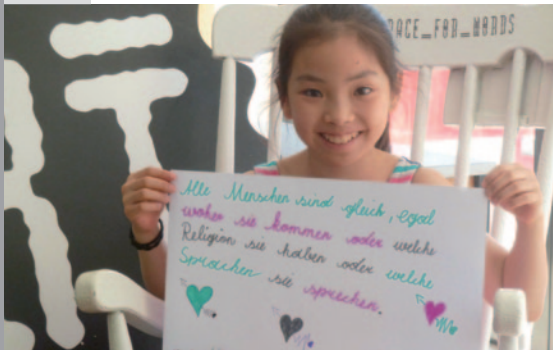 ACE_FOR_WORDS
Alle Menschen sind gleich, egal
woher sie kommen oder welche
Religion sie haben oder welche
Sprachen sie sprechen.